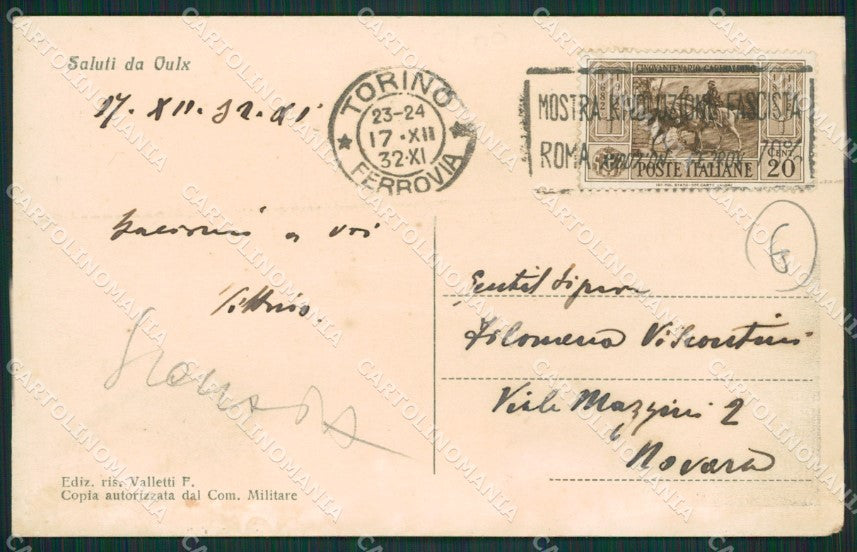 Saluti da Oulx
17. XII. 32. XI
TORINO
23-24
17·XII
32·XI
FERROVIA
MOSTRA RIVOLUZIONE FASCISTA
ROMA RIDUZION. FERROV. 70%
CINQUANTENARIO GARIBALDINO
CENT. 20
POSTE ITALIANE
6
a voi
Vittorio.
Gentil Signora
Filomena Visontini
Viale Mazzini 2
Novara
Ediz. ris. Valletti F.
Copia autorizzata dal Com. Militare
CARTOLINOMANIA